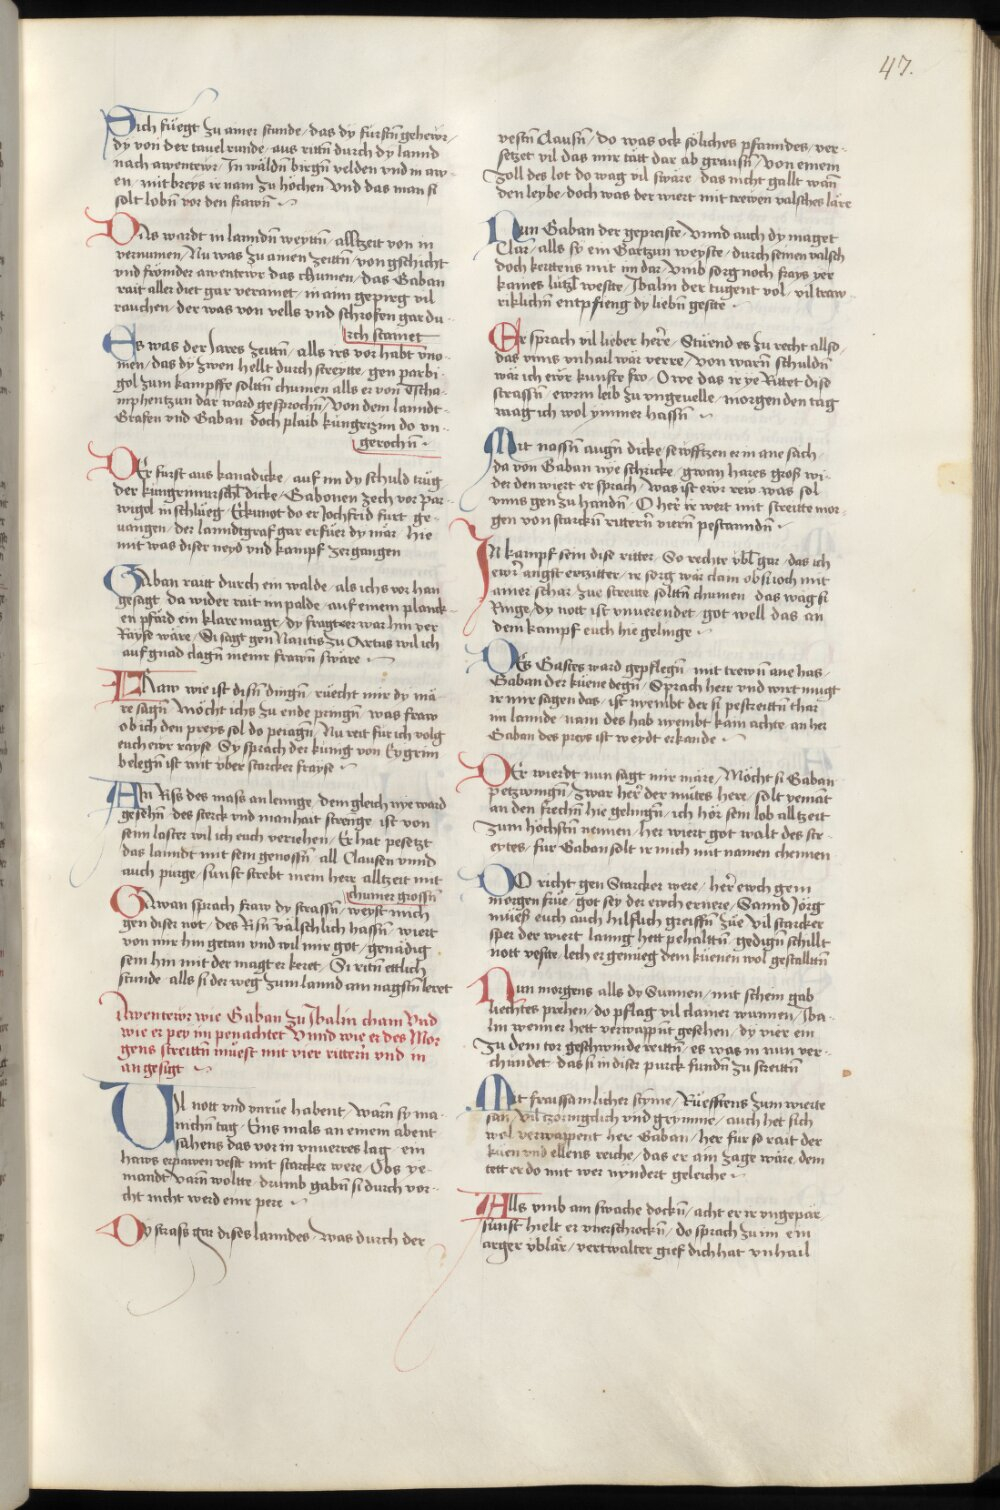 47.
Sich füegt zu ainer stunde / das dy fürstn gehewr /
dy von der tauelrunde / aus rittn durch dy lannd
nach awentewr / In wäldn birgn velden vnd in aw
en / mit breys ir nam zu höchen Vnd das man si
solt lobn vor den frawn
Das wardt in lanndn weyttn / alltzeit von in
vernumen / Nu was zu ainen zeittn / von gschicht
vnd frömder awentewr das chumen / das Gaban
rait aller diet gar veramet / in ainn gepirg vil
rauchen / der was von vells vnd schrofen gar du
rch stamet
Es was der Jares zeittn / alls irs vor habt vno
men / das dy zwen hellt durch streytte / gen parbi
gol zum kampffe solttn chumen alls er von Tscha
mphentzun dar ward gesprochn / Von dem lanndt
Grafen vnd Gaban doch plaib kungrizin do vn
gerochn
Der fürst aus kanadicke / auf im dy schuld trüg
der kungrimurschl dicke / Gabonen zech vor par
wigol in schlueg / Erkunot do er Jochfrid furt ge
uangen / der lanndtgraf gar erfüer dy mär hie
mit was diser neyd vnd kampf zergangen
Gaban raitt durch ein walde / als ich s vor han
gesagt da wider rait im palde / auf einem planck
en pfärd ein klare magt / dy fragt er war hin ver
Rayse wäre / Si sagt gen Nantis zu Artus wil ich
auf gnad clagn meinr frawn swäre
Fraw wie ist disn dingn / ruecht mir dy mä
re sagn / möcht ichs zu ende pringn / was fraw
ob ich den preys sol do peiagn / Nu reit für ich volg
euch ewr rayse Sy sprach der künig von Eygrim
belegn ist mit vber starcker frayse
Ain Riss des mass an lennge dem gleich nye ward
gesehn des sterck vnd manhait strenge ist von
seim laster wil ich euch veriehen / Er hat pesetzt
das lanndt mit sein genossn all Clausen vnnd
auch purge / sunst strebt meim herr alltzeit mit
chumer grossn
Gawan sprach fraw dy strassn / weyst mich
gen diser not / des Risn välschlich hassn / wiert
von mir hin getan vnd wil mir got / genädig
sein hin mit der magt er keret / Si rittn ettlich
stunde alls si der weg zum lannd am nagstn leret
Awentewr wie Gaban zu Ibalin cham Vnd
wie er pey im penachtet Vnnd wie er des Mor
gens streittn müest mit vier rittern vnd in
angesigt
Vil nott vnd vnrüe habent / warn sy ma
nichn tag / Eins mals an einem abent
sahens das vor in vnuerres lag / ein
haws erpawen vest mit starcker were / Obs ye
mandt varn woltte / drumb gabn si durch vor
cht nicht werd einr pere
Dy strass gar dises lanndes / was durch der
vestn Clausn / do was ock söliches pfanndes / ver
setzet vil das mir tätt dar ab grausn / Von einem
zoll des lot do wag vil swäre / das nicht gallt wann
den leybe / doch was der wiert mit trewen valsches läre
Nun Gaban der gepreiste / Vnnd auch dy maget
Clar / alls sy ein Gartzun weyste / durch seinen valsch
doch kerttens mit im dar / Vmb sorg noch frays yer
kaines lützl westte / Ibalin der tugent vol / vil traw
riklichn entpfieng dy liebn gestte
Er sprach vil lieber herre / Stüend es zu recht allso /
das vnns vnhail wär verre / von warn schuldn
wär ich ewr kunfte fro / O we das ir ye Rittet dise
strassn / ewrm leib zu vngeuelle / morgen den tag
mag ich wol ymmer hassn
Mit nassn augn dicke sewfftzen er in ane sach /
da von Gaban nye schricke / gwan hares gross wi
der den wiert er sprach / was ist ewr rew was sol
vnns gen zu handn / O her ir wert mit streitte mor
gen von starckn rittern viern pestanndn
In kampf sein dise ritter / So rechte vbl gar / das ich
ewr angst ertzitter / ir sorg wär clain ob si ioch mit
ainer schar / zue streitte solttn chumen das wäg si
Ringe / dy nott ist vnuerendet / got well das an
dem kampf euch hie gelinge
Des Gastes ward gepflegn mit trewn ane has /
Gaban der küene degn / Sprach herr vnd wirt mugt
ir mir sagen das / ist nyembt der si pestreittn thar
im lannde / nain des hab nyembt kain achte / an her
Gaban des preys ist weydt erkande
Der wierdt nun sagt mir märe / Möcht si Gaban
petzwingn / zwar herr der mütes here / solt yemat
an den frechn hie gelingn / ich hör sein lob alltzeit
zum höchstn nennen / her wiert got walt des str
eytes / für Gaban solt ir mich mit namen chennen
Do richt gen Starcker were / herr ewch gein
morgen frue / got sey der ewch ernere / Sannd Jörg
müess euch auch hilflich greiffn zue / Vil starcker
sper der wiert lanng hett pehalttn / gedign schillt
nott vestte / lech er genueg dem küenen wol gestalltn
Nun morgens alls dy Sunnen / mit schein gab
liechtes prehen / do pflag vil clainer wunnen / Iba
lin wenner hett verwappnt gesehen / dy vier ein
zu dem tor geschwinde reittn / es was in nun ver
chündet das si in diser purck fundn zu streittn
Mit fraissamlicher stymme / Rüefftens zum wierte
san / vil czorngclich vnd grymme / auch het sich
wol verwappent her Gaban / her für so rait der
küen vnd ellens reiche / das er ain zage wäre dem
tett er do mit wer nyndert geleiche
Alls vmb ain swache dockn / acht er ir vngepär /
sunst hielt er vnerschrockn / do sprach zu im ein
arger vblär / vertwalter gief dich hat vnhail